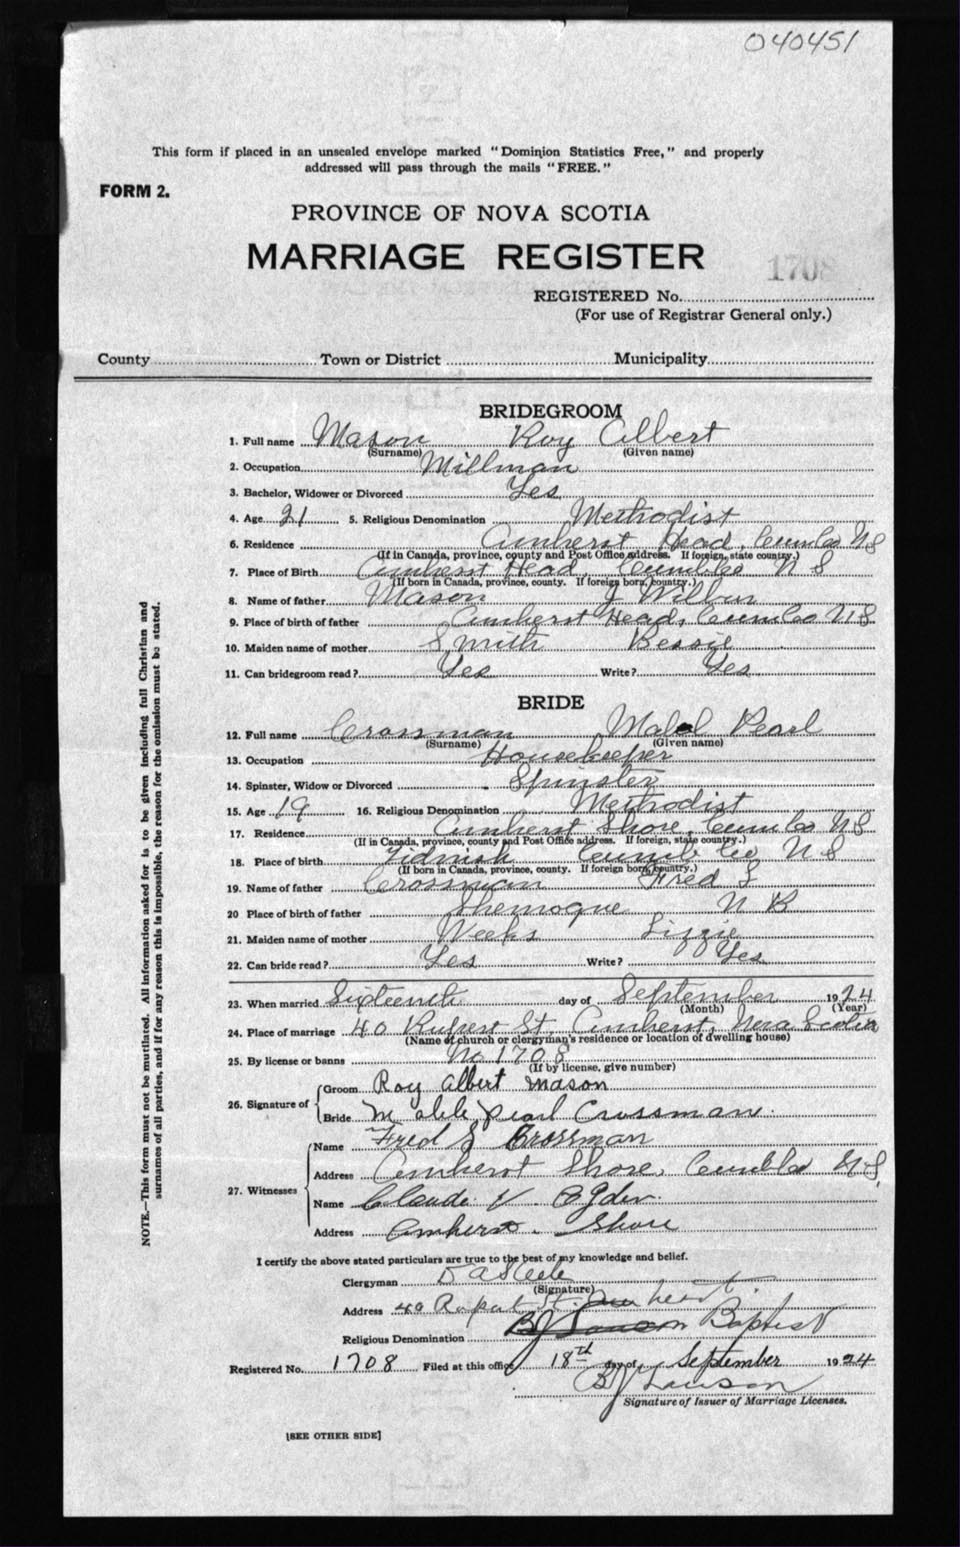 040451
This form if placed in an unsealed envelope marked "Dominion Statistics Free," and properly
addressed will pass through the mails "FREE."
FORM 2.
PROVINCE OF NOVA SCOTIA
MARRIAGE REGISTER
1708
REGISTERED No.
(For use of Registrar General only.)
County Town or District Municipality
BRIDEGROOM
1. Full name Mason Roy Albert
(Surname) (Given name)
2. Occupation Millman
3. Bachelor, Widower or Divorced Yes
4. Age 21 5. Religious Denomination Methodist
6. Residence Amherst Head, Cumb Co N S
(If in Canada, province, county and Post Office address. If foreign, state country.)
7. Place of Birth Amherst Head Cumb Co N S
(If born in Canada, province, county. If foreign born, country.)
8. Name of father Mason J Wilbur
9. Place of birth of father Amherst Head, Cumb Co N S
10. Maiden name of mother Smith Bessie
11. Can bridegroom read? Yes Write? Yes
BRIDE
12. Full name Crossman Mabel Pearl
(Surname) (Given name)
13. Occupation Housekeeper
14. Spinster, Widow or Divorced Spinster
15. Age 19 16. Religious Denomination Methodist
17. Residence Amherst Shore, Cumb Co N S
(If in Canada, province, county and Post Office address. If foreign, state country.)
18. Place of birth Tidnish Cumb Co N S
(If born in Canada, province, county. If foreign born, country.)
19. Name of father Crossman Fred S
20 Place of birth of father Shemogue N B
21. Maiden name of mother Weeks Lizzie
22. Can bride read? Yes Write? Yes
23. When married Sixteenth day of September 1924
(Month) (Year)
24. Place of marriage 40 Rupert St. Amherst, Nova Scotia
(Name of church or clergyman's residence or location of dwelling house)
25. By license or banns No 1708
(If by license, give number)
26. Signature of
Groom Roy Albert Mason
Bride Mabele pearl Crossman.
27. Witnesses
Name Fred S Crossman
Address Amherst Shore, Cumb Co N.S.
Name Claude V Ogden.
Address Amherst. Shore
I certify the above stated particulars are true to the best of my knowledge and belief.
Clergyman D A Steele
(Signature)
Address 40 Rupert St. Amherst.
Religious Denomination Baptist
Registered No. 1708 Filed at this office 18th day of September 1924
B J Lawson
Signature of Issuer of Marriage Licenses.
[SEE OTHER SIDE]
NOTE.—This form must not be mutilated. All information asked for is to be given including full Christian and
surnames of all parties, and if for any reason this is impossible, the reason for the omission must be stated.